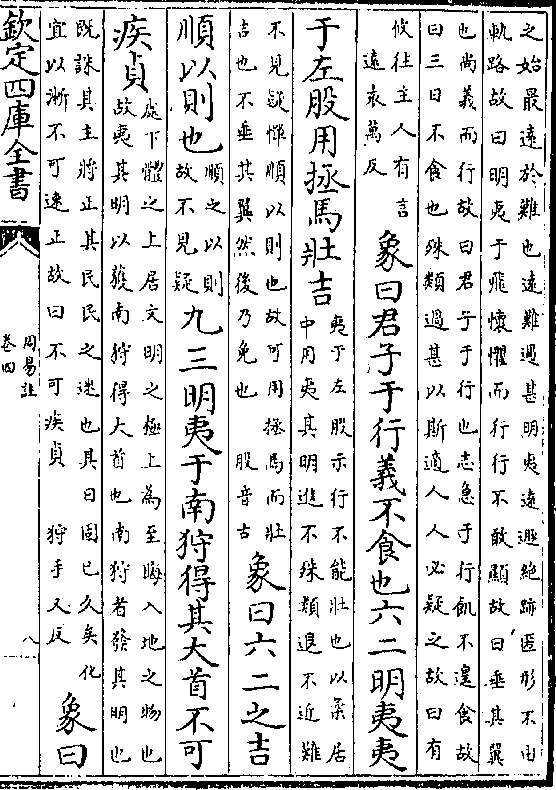 之始最遠於難也遠難過甚明夷遠遯絶跡匿形不由
軌路故曰明夷于飛懷懼而行行不敢顯故曰垂其翼
也尚義而行故曰君子于行也志急于行飢不遑食故
曰三日不食也殊類過甚以斯適人人必疑之故曰有
攸往主人有言
遠袁萬反
象曰君子于行義不食也六二明夷夷
于左股用拯馬壯吉
夷于左股示行不能壯也以柔居
中用夷其明進不殊類退不近難
不見疑憚順以則也故可用拯馬而壯
吉也不垂其翼然後乃免也 股音古
象曰六二之吉
順以則也
順之以則
故不見疑
九三明夷于南狩得其大首不可
疾貞
處下體之上居文明之極上為至晦入地之物也
故夷其明以獲南狩得大首也南狩者發其明也
既誅其主將正其民民之迷也其日固已久矣化
宜以漸不可速正故曰不可疾貞 狩手又反
象曰
欽定四庫全書
周易註
卷四
八